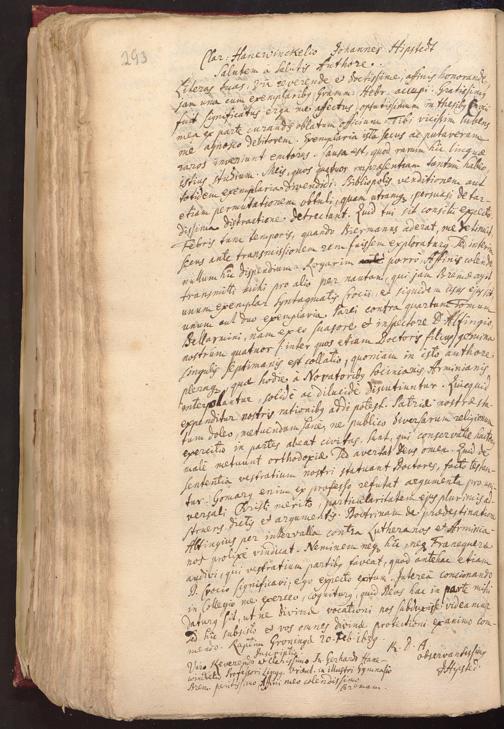 293
Clar. Hanewinckelio Johannes Hipstedt
Salutem a Salutis Authore.
Literas tuas, Vir reverende et doctissime, affinis honorande,
jam una cum exemplaribus Gramm. Hebr. accepi. Gratissimus
fuit significatus erga me affectus, oportunissimum in thesibus
mea ex parte curandis oblatum officium. Tibi vicissim lubens
me agnosco debitorem. Exemplaria ista secus ac putaveram
raros inveniunt emtores. Causa est, quod rarum hic linguae
istius studium. Meis, quos quatuor in praesentiarum tantum habeo,
totidem exemplaria divendidi. Bibliopolis venditionem aut
etiam permutationem obtuli, quam utramque, persuasi de tar-
dissima distractione detrectant. Quid tui sit consilii expecto.
Febris tunc temporis, quando Biermanus aderat, me detinuit
secus ante transmissionem rem fuissem exploraturus. Tu interim
nullum hic dispendium. Rogarim porro, Affinis colende,
transmitti mihi pro alio per nautam, qui jam Bremae agit
unum exemplar Syntagmatis Crocii, et siquidem ejus ejusdem
unum aut duo exemplaria Paraei contra quartum Tomum
Bellarmini, nam ex eo suasore et inspectore D. Altingio
nostrum quatuor (inter quos etiam Doctoris filius) gemina
singulis septimanis est collatio, quoniam in isto authore
pleraque, quae hodie a Novatoribus Socinianis, Arminianis
interpolantur, solide ac dilucide discutiuntur. Quicquid
expanditur nostris rationibus addi potest. Patriae nostrae sta-
tum doleo, metuendum sane, ne publico diversarum religionum
exercitio in partes abeat civitas. Sunt, qui conservatae hactenus
male metuunt orthodoxiae. Tu avertat Deus omen. Quid de
sententia vestratium nostri statuant Doctores, facile aestima-
tur. Gomarus enim ex professo refutat argumenta pro uni-
versali Christi merito, particularitatem ejus plurimis ad-
struens dictis et argumentis. Doctrinam de praedestinatione
Altingius per intervalla contra Lutheranos et Arminia-
nos prolixe vindicat. Neminem neque hic, neque Franequerae
audivi, qui vestratium partibus faveat, quod antehac etiam
D. Crocio significavi, ejus expecto votum. Interea concionando
in Collegio me exerceo, cogniturus, quid Deus hac in parte mihi
daturus sit, ut ne divinae vocationi nos subduxisse videamur.
Sed hic subsisto et vos omnes divinae protectioni ex animo com-
mendo. Raptim Groningae 20. Feb. 1639.
R. D. A
observantissimus
J Hipst.
Inscriptio
Viro Reverendo et Clarissimo Dn. Gerhardo Hane-
winckelio Professori Linguae Orient. in illustri Gymnasio
Brem. peritissimo Affini meo colendissimo
Bremam.